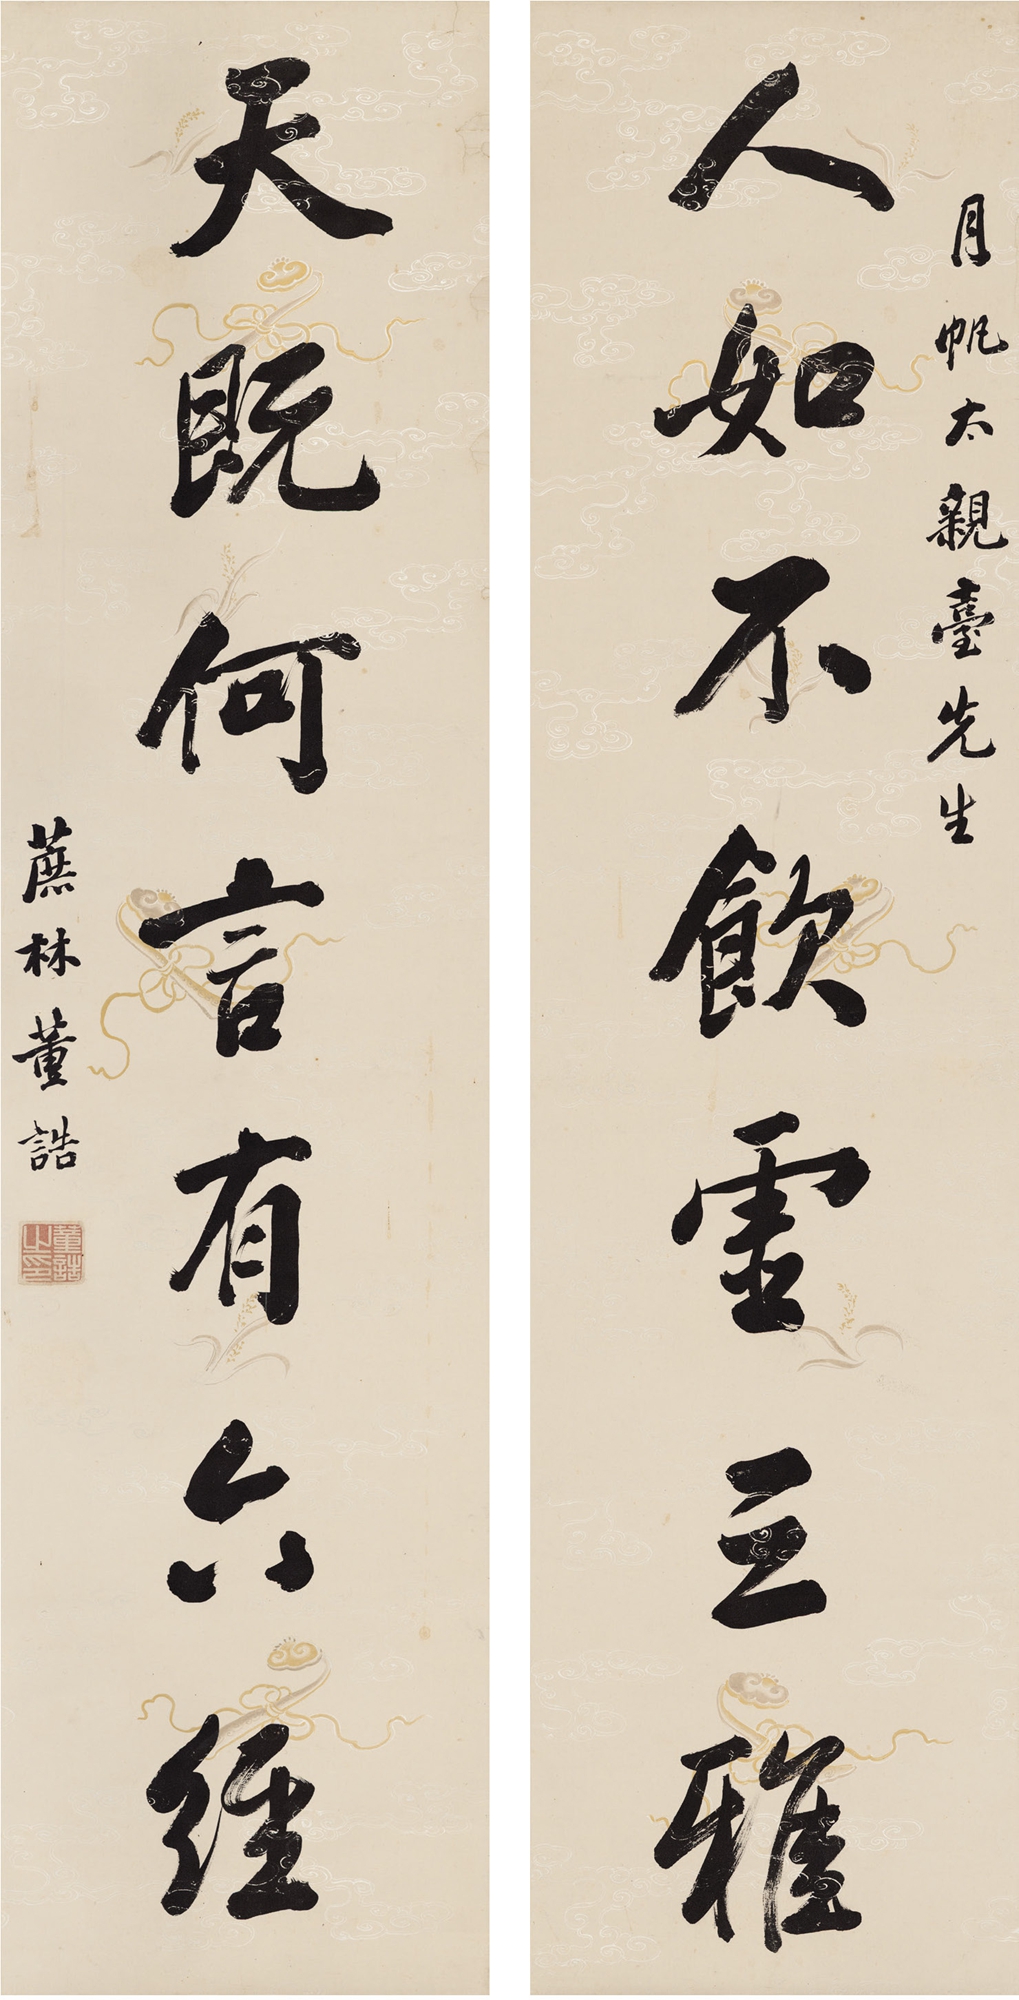 月帆太親臺先生
人如不飲虛三雅
天既何言有六經
蔗林董誥
董誥之印